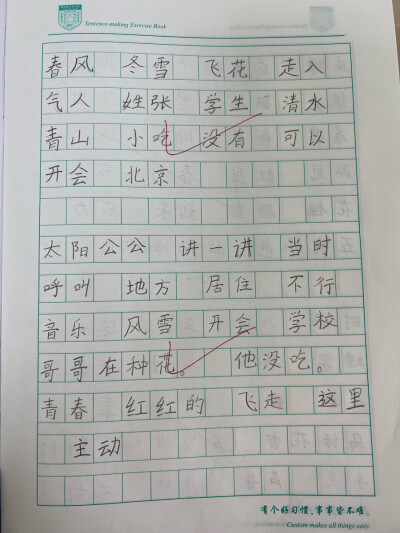 Sentence-making Exercise Book
春风 冬雪 飞花 走入
气人 姓张 学生 清水
青山 小吃 没有 可以
开会 北京
太阳公公 讲一讲 当时
呼叫 地方 居住 不行
音乐 风雪 开会 学校
哥哥在种花。 他没吃。
青春 红红的 飞走 这里
主动
有个好习惯,事事皆不难。
Custom makes all things easy.